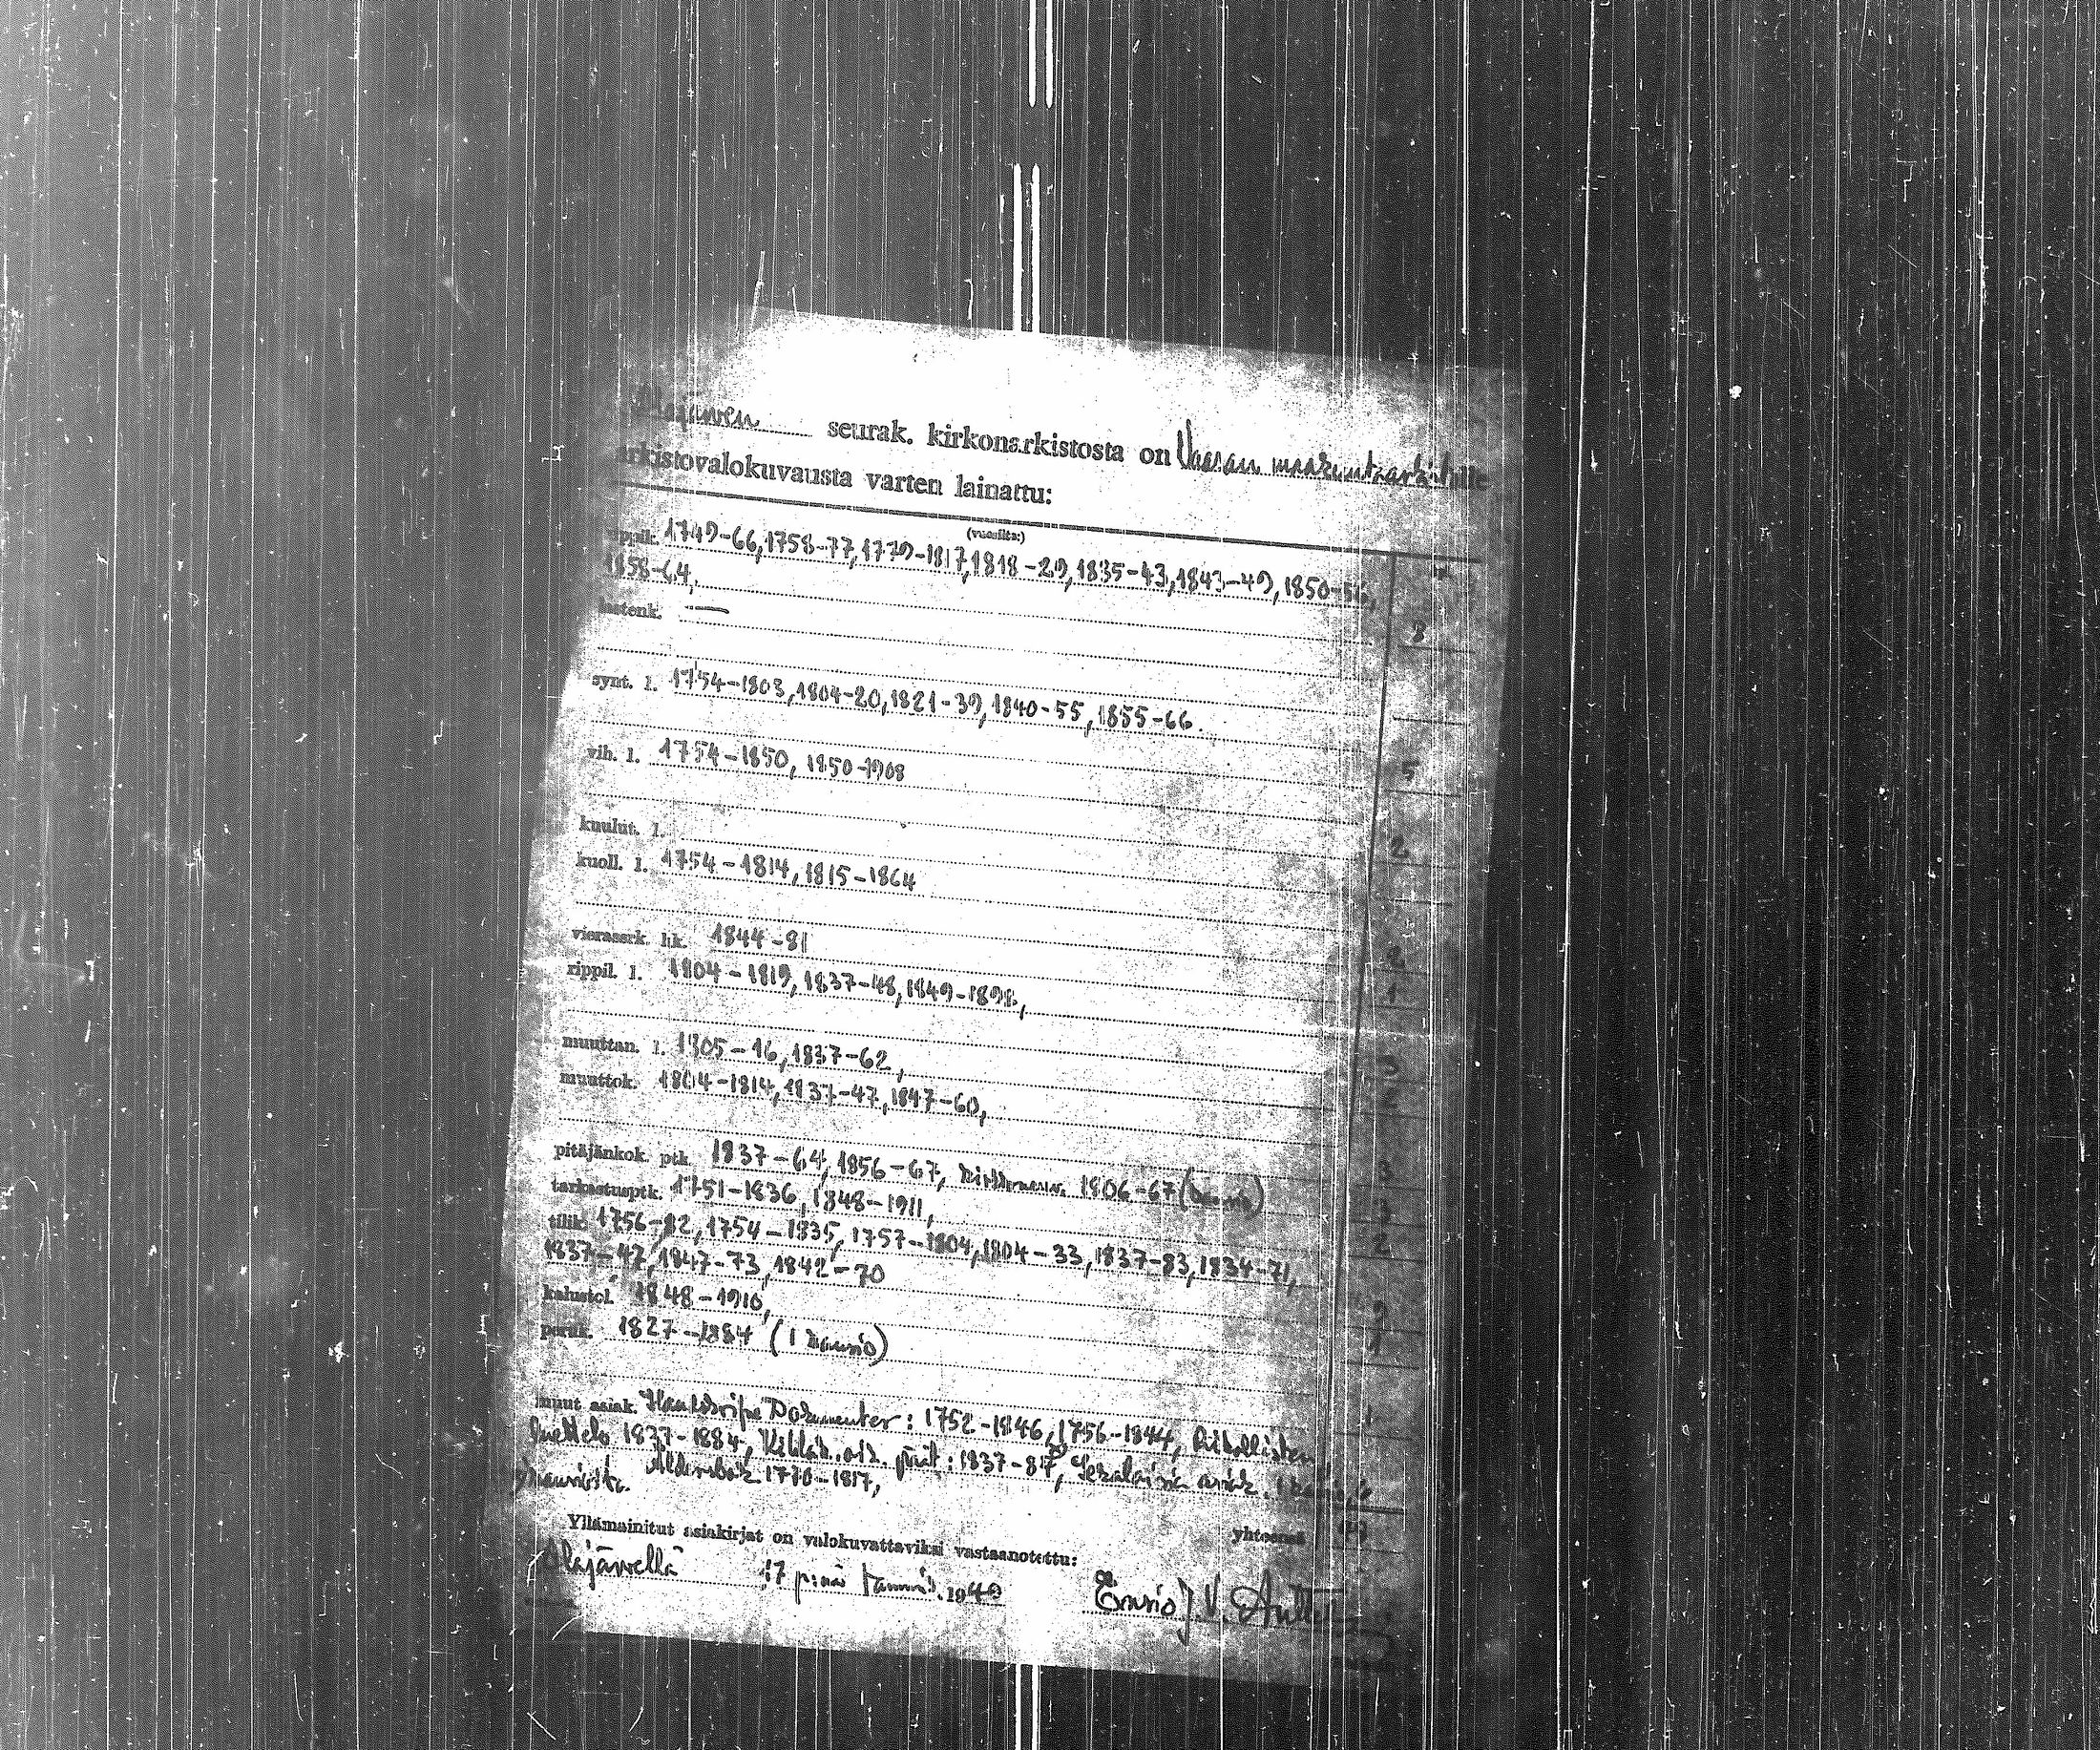 Alajärven seurak. kirkonarkistosta on Vaasan maakunta-arkistolle
arkistovalokuvausta varten lainattu:
(vuosilta:)
rippik. 1749-66, 1758-77, 1779-1817, 1818-29, 1835-43, 1843-49, 1850-56,
1858-64, 8
lastenk. —
synt. l. 1754-1803, 1804-20, 1821-39, 1840-55, 1855-66.
5
vih. l. 1754-1850, 1850-1908
2
kuulut. l.
kuoll. l. 1754-1814, 1815-1864
2
vierasserk. hk. 1844-81 1
rippil. l. 1804-1819, 1837-48, 1849-1898,
3
muuttan. l. 1805-16, 1837-62, 2
muuttok. 1804-1814, 1837-47, 1847-60,
3
pitäjänkok. ptk. 1837-64, 1856-67, 1806-67 3
tarkastusptk. 1751-1836, 1848-1911, 2
tilik. 1756-82, 1754-1835, 1757-1804, 1804-33, 1837-83, 1834-71,
1837-47, 1847-73, 1842-70 9
kalustol. 1848-1910, 1
peruk. 1827-1884 (1 kansio)
1
muut asiak. Dokumenter: 1752-1846, 1756-1844,
luettelo 1837-1884, 1837-87, Sekalaisia asiak.
1770-1817,
yhteensä
Yllämainitut asiakirjat on valokuvattaviksi vastaanotettu:
Alajärvellä 17 p:nä tammik. 1949 Ensio J.V.